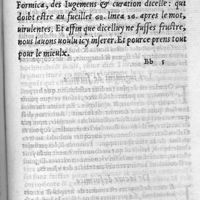 Formica, des Iugemens & curation dicelle: qui
doibt estre au fueillet 62. linea 20. apres le mot,
virulentes. Et affin que dicelluy ne fusses frustre,
nous lauons voulu icy inserer. Et pource prens tout
pour le mieulx.
Bb 5